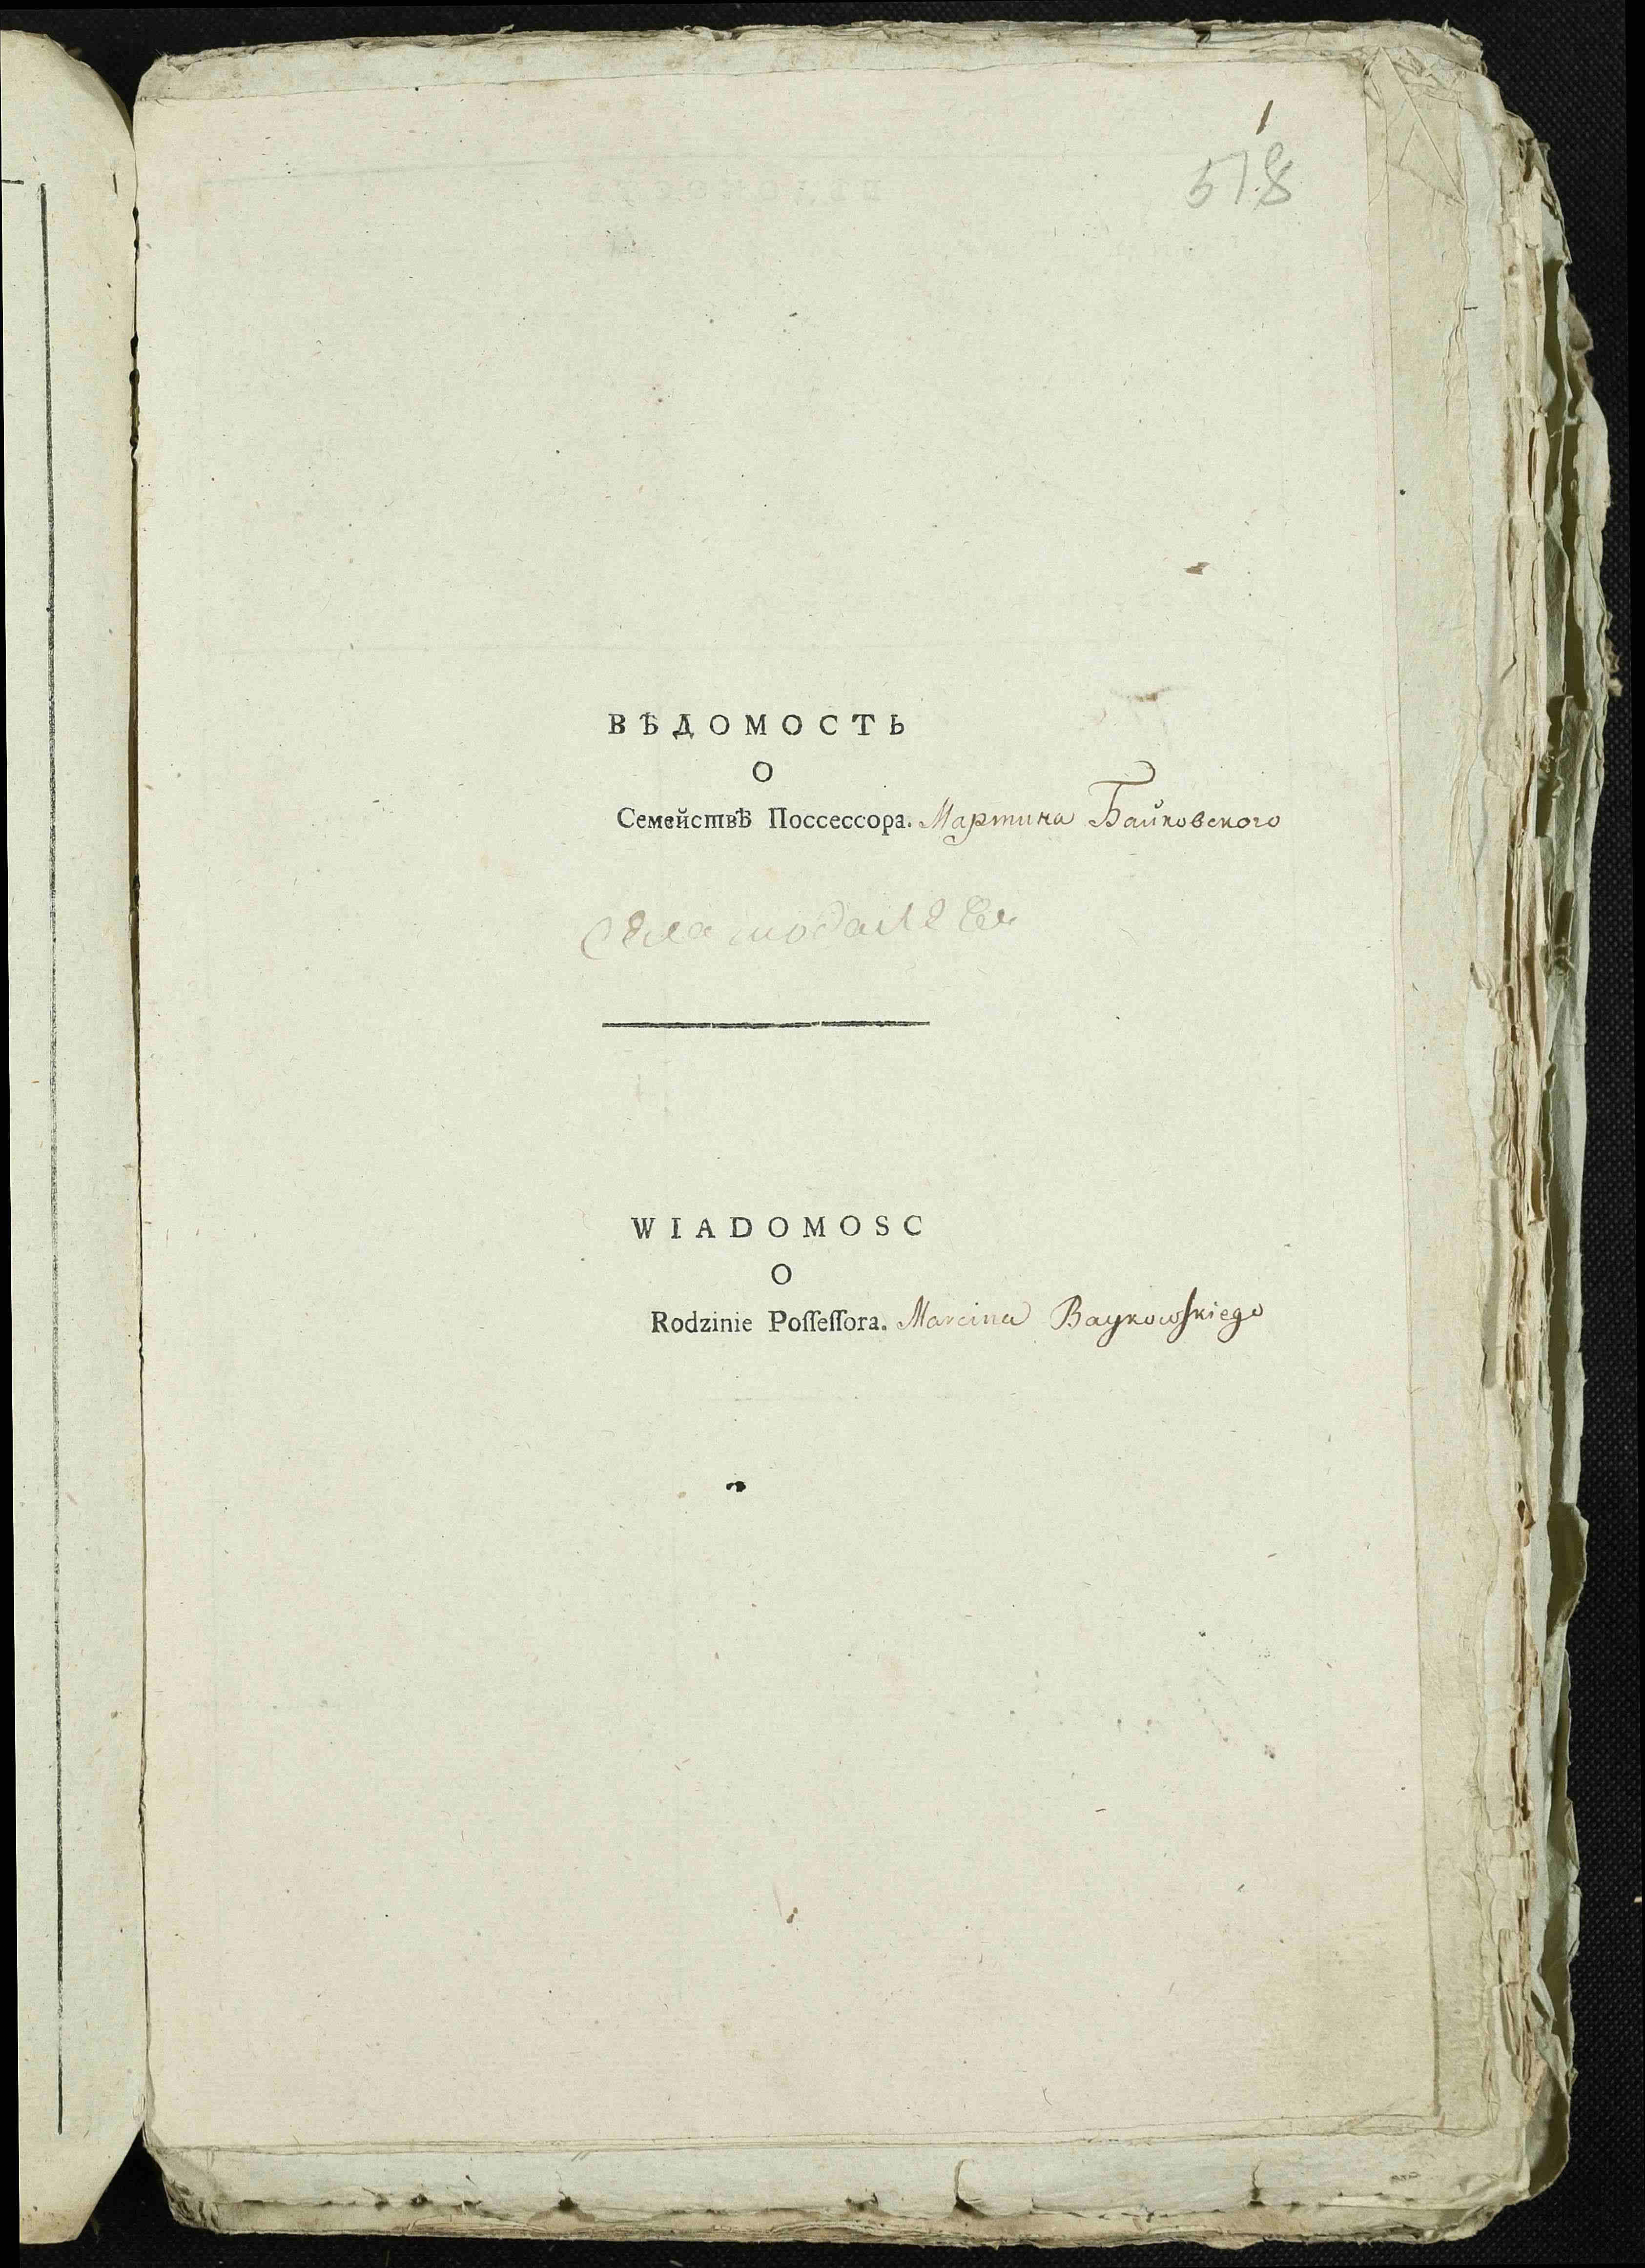 1
518
ВѢДОМОСТЬ
О
Семействѣ Поссессора. Мартина Байковского
Села
WIADOMOSC
O
Rodzinie Poſſeſſora. Marcina Baykowſkiego